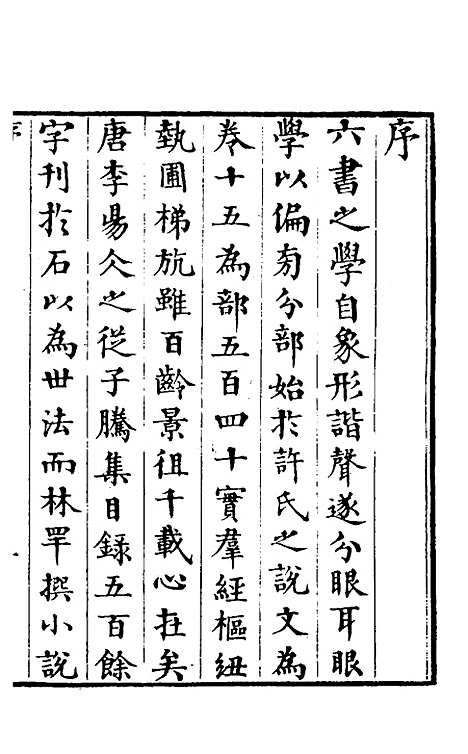 序
六書之學自象形諧聲遂分眼耳眼
學以偏旁分部始於許氏之說文為
卷十五為部五百四十實羣經樞紐
執圃梯航雖百齡景徂千載心在矣
唐李陽冰之從子騰集目錄五百餘
字刊於石以為世法而林罕撰小說
序
一